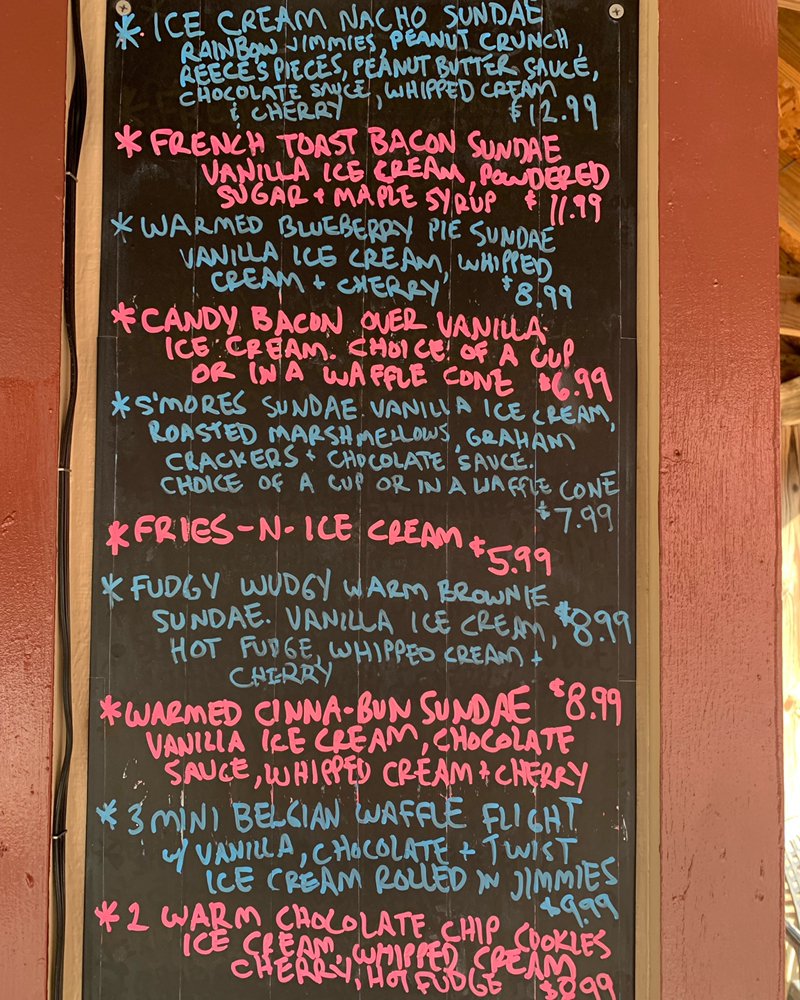 * ICE CREAM NACHO SUNDAE
RAINBOW JIMMIES, PEANUT CRUNCH,
REECE'S PIECES, PEANUT BUTTER SAUCE,
CHOCOLATE SAUCE, WHIPPED CREAM
& CHERRY $12.99
* FRENCH TOAST BACON SUNDAE
VANILLA ICE CREAM, POWDERED
SUGAR + MAPLE SYRUP $11.99
* WARMED BLUEBERRY PIE SUNDAE
VANILLA ICE CREAM, WHIPPED
CREAM + CHERRY $8.99
* CANDY BACON OVER VANILLA
ICE CREAM. CHOICE OF A CUP
OR IN A WAFFLE CONE $6.99
* S'MORES SUNDAE. VANILLA ICE CREAM,
ROASTED MARSHMELLOWS, GRAHAM
CRACKERS + CHOCOLATE SAUCE.
CHOICE OF A CUP OR IN A WAFFLE CONE
$7.99
* FRIES-N-ICE CREAM $5.99
* FUDGY WUDGY WARM BROWNIE
SUNDAE. VANILLA ICE CREAM, $8.99
HOT FUDGE, WHIPPED CREAM +
CHERRY
* WARMED CINNA-BUN SUNDAE $8.99
VANILLA ICE CREAM, CHOCOLATE
SAUCE, WHIPPED CREAM + CHERRY
* 3 MINI BELGIAN WAFFLE FLIGHT
w/ VANILLA, CHOCOLATE + TWIST
ICE CREAM ROLLED IN JIMMIES
$9.99
* 2 WARM CHOCOLATE CHIP COOKIES
ICE CREAM, WHIPPED CREAM
CHERRY, HOT FUDGE $8.99